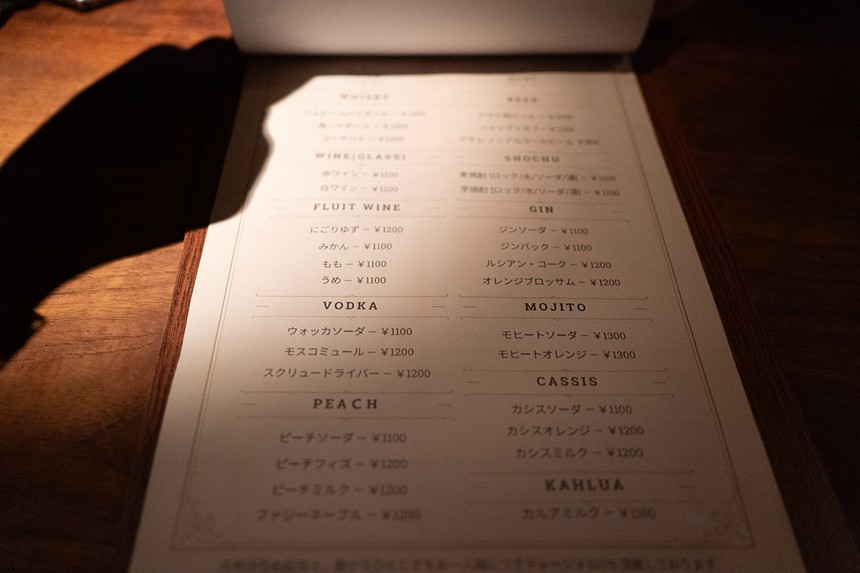 WHISKY
コークハイ – ¥1200
WINE(GLASS)
赤ワイン – ¥1100
白ワイン – ¥1100
FLUIT WINE
にごりゆず – ¥1200
みかん – ¥1100
もも – ¥1100
うめ – ¥1100
VODKA
ウォッカソーダ – ¥1100
モスコミュール – ¥1200
スクリュードライバー – ¥1200
PEACH
ピーチソーダ – ¥1100
ピーチフィズ – ¥1200
ピーチミルク – ¥1200
ファジーネーブル – ¥1200
BEER
シャンディガフ – ¥1200
アサヒ ノンアルコールビール
SHOCHU
麦焼酎 [ロック/水/ソーダ/湯] – ¥1100
芋焼酎 [ロック/水/ソーダ/湯] – ¥1100
GIN
ジンソーダ – ¥1100
ジンバック – ¥1100
ルシアン・コーク – ¥1200
オレンジブロッサム – ¥1200
MOJITO
モヒートソーダ – ¥1300
モヒートオレンジ – ¥1300
CASSIS
カシスソーダ – ¥1100
カシスオレンジ – ¥1200
カシスミルク – ¥1200
KAHLUA
カルアミルク – ¥1100